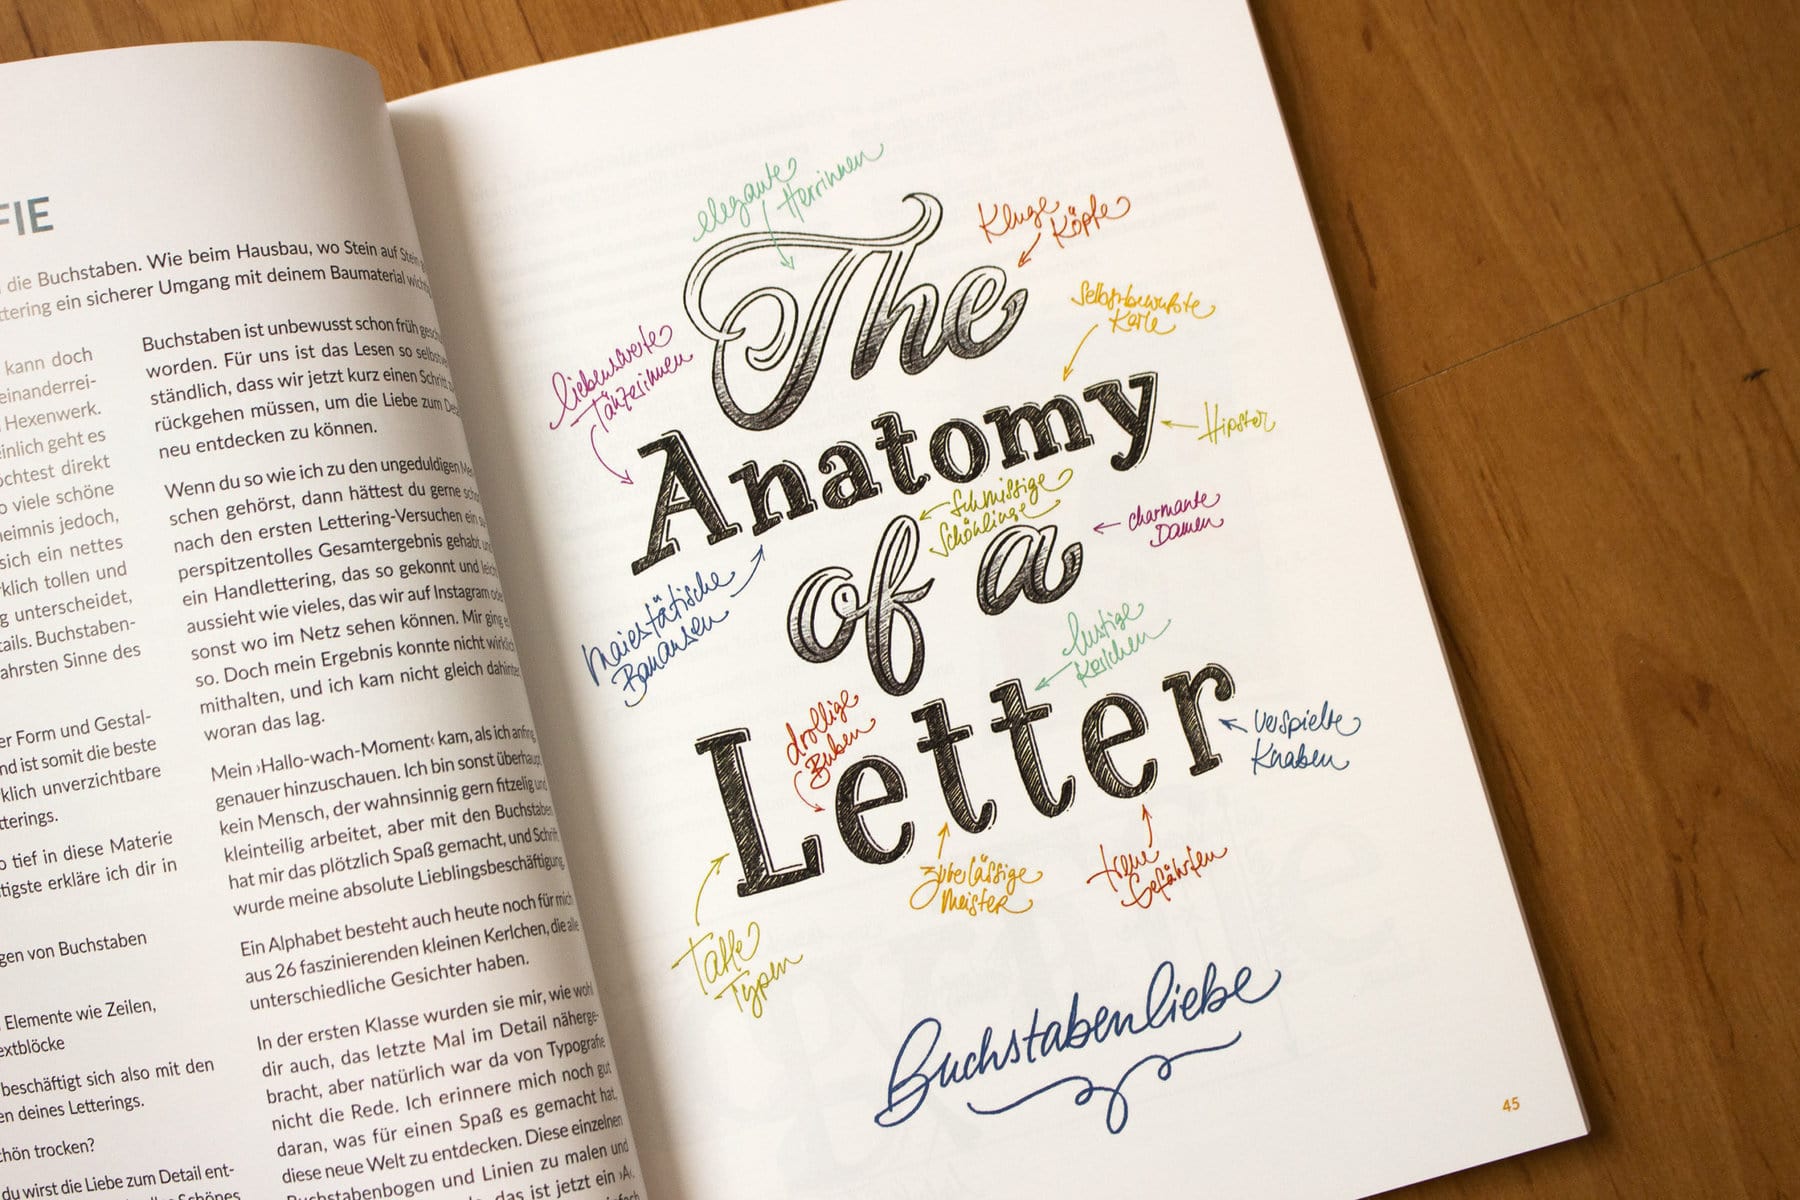 FIE
die Buchstaben. Wie beim Hausbau, wo Stein auf Stein
ttering ein sicherer Umgang mit deinem Baumaterial wichtig
kann doch
einanderrei-
Hexenwerk.
einlich geht es
öchtest direkt
o viele schöne
heimnis jedoch,
sich ein nettes
rklich tollen und
g unterscheidet,
tails. Buchstaben-
ahrsten Sinne des
er Form und Gestal-
nd ist somit die beste
klich unverzichtbare
tterings.
o tief in diese Materie
tigste erkläre ich dir in
gen von Buchstaben
Elemente wie Zeilen,
extblöcke
beschäftigt sich also mit den
en deines Letterings.
chön trocken?
du wirst die Liebe zum Detail ent-
Schönes
Buchstaben ist unbewusst schon früh gesch
worden. Für uns ist das Lesen so selbstver
ständlich, dass wir jetzt kurz einen Schritt zu
rückgehen müssen, um die Liebe zum De
neu entdecken zu können.
Wenn du so wie ich zu den ungeduldigen Me
schen gehörst, dann hättest du gerne scho
nach den ersten Lettering-Versuchen ein su
perspitzentolles Gesamtergebnis gehabt un
ein Handlettering, das so gekonnt und leich
aussieht wie vieles, das wir auf Instagram ode
sonst wo im Netz sehen können. Mir ging e
so. Doch mein Ergebnis konnte nicht wirklich
mithalten, und ich kam nicht gleich dahinter,
woran das lag.
Mein ›Hallo-wach-Moment‹ kam, als ich anfing,
genauer hinzuschauen. Ich bin sonst überhaupt
kein Mensch, der wahnsinnig gern fitzelig und
kleinteilig arbeitet, aber mit den Buchstaben
hat mir das plötzlich Spaß gemacht, und Schrift
wurde meine absolute Lieblingsbeschäftigung.
Ein Alphabet besteht auch heute noch für mich
aus 26 faszinierenden kleinen Kerlchen, die alle
unterschiedliche Gesichter haben.
In der ersten Klasse wurden sie mir, wie wohl
dir auch, das letzte Mal im Detail näherge-
bracht, aber natürlich war da von Typografie
nicht die Rede. Ich erinnere mich noch gut
daran, was für einen Spaß es gemacht hat,
diese neue Welt zu entdecken. Diese einzelnen
Buchstabenbogen und Linien zu malen und
das ist jetzt ein ›A‹.
elegante
Herrinnen
Kluge
Köpfe
The
selbstbewusste
Kerle
liebenswerte
Tänzerinnen
Anatomy
Hipster
schmissige
Schönlinge
charmante
Damen
of a
majestätische
Bananen
lustige
Kerlchen
drollige
Buben
Letter
verspielte
Knaben
zuverlässige
Meister
treue
Gefährten
Taffe
Typen
Buchstabenliebe
45